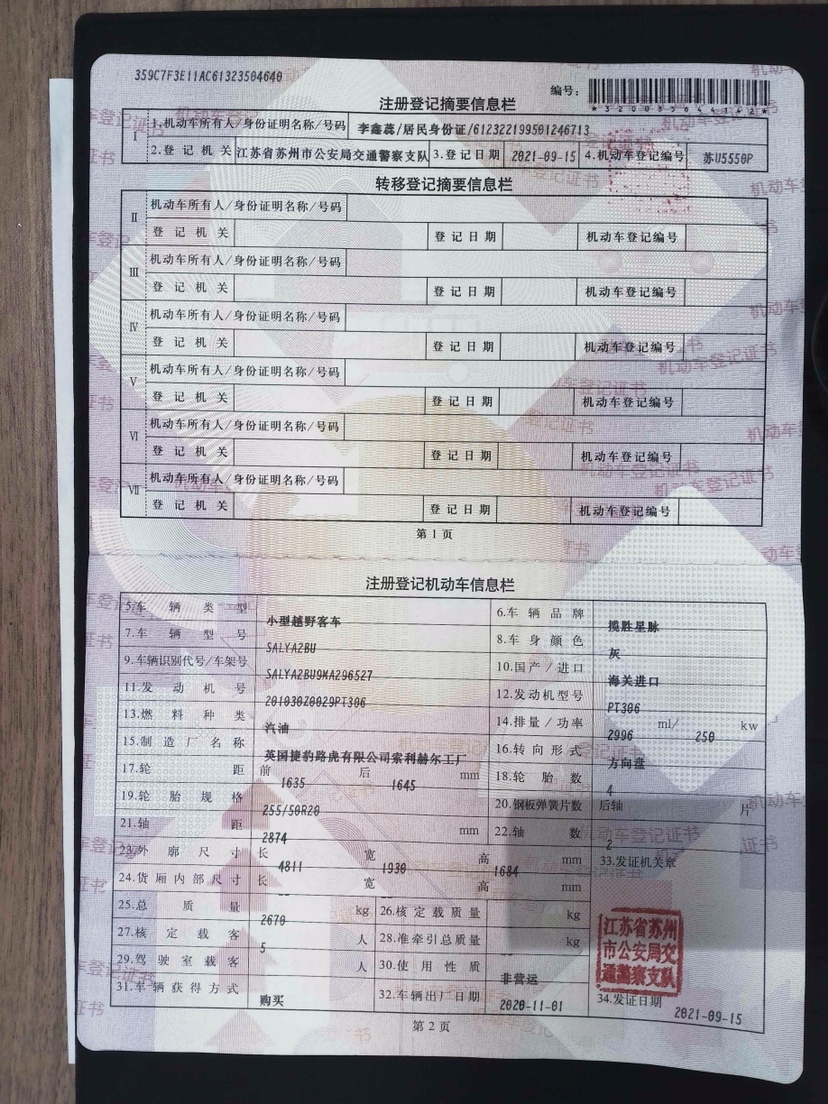 359C7F3E11AC61323504640
编号：
*320035644142*
注册登记摘要信息栏
Ⅰ 1.机动车所有人/身份证明名称/号码 李鑫蕊/居民身份证/612322199501246713
2.登记机关 江苏省苏州市公安局交通警察支队 3.登记日期 2021-09-15 4.机动车登记编号 苏U5550P
转移登记摘要信息栏
Ⅱ 机动车所有人/身份证明名称/号码
登记机关 登记日期 机动车登记编号
Ⅲ 机动车所有人/身份证明名称/号码
登记机关 登记日期 机动车登记编号
Ⅳ 机动车所有人/身份证明名称/号码
登记机关 登记日期 机动车登记编号
Ⅴ 机动车所有人/身份证明名称/号码
登记机关 登记日期 机动车登记编号
Ⅵ 机动车所有人/身份证明名称/号码
登记机关 登记日期 机动车登记编号
Ⅶ 机动车所有人/身份证明名称/号码
登记机关 登记日期 机动车登记编号
第1页
注册登记机动车信息栏
5.车辆类型 小型越野客车 6.车辆品牌 揽胜星脉
7.车辆型号 SALYA2BU 8.车身颜色 灰
9.车辆识别代号/车架号 SALYA2BU9MA296527 10.国产/进口 海关进口
11.发动机号 201030Z0029PT306 12.发动机型号 PT306
13.燃料种类 汽油 14.排量/功率 2996 ml/ 250 kw
15.制造厂名称 英国捷豹路虎有限公司索利赫尔工厂 16.转向形式 方向盘
17.轮距 前 1635 后 1645 mm 18.轮胎数 4
19.轮胎规格 255/50R20 20.钢板弹簧片数 后轴 片
21.轴距 2874 mm 22.轴数 2
23.外廓尺寸 长 4811 宽 1930 高 1684 mm 33.发证机关章
24.货厢内部尺寸 长 宽 高 mm
25.总质量 2670 kg 26.核定载质量 kg
27.核定载客 5 人 28.准牵引总质量 kg
29.驾驶室载客 人 30.使用性质 非营运
31.车辆获得方式 购买 32.车辆出厂日期 2020-11-01 34.发证日期 2021-09-15
江苏省苏州
市公安局交
通警察支队
第2页